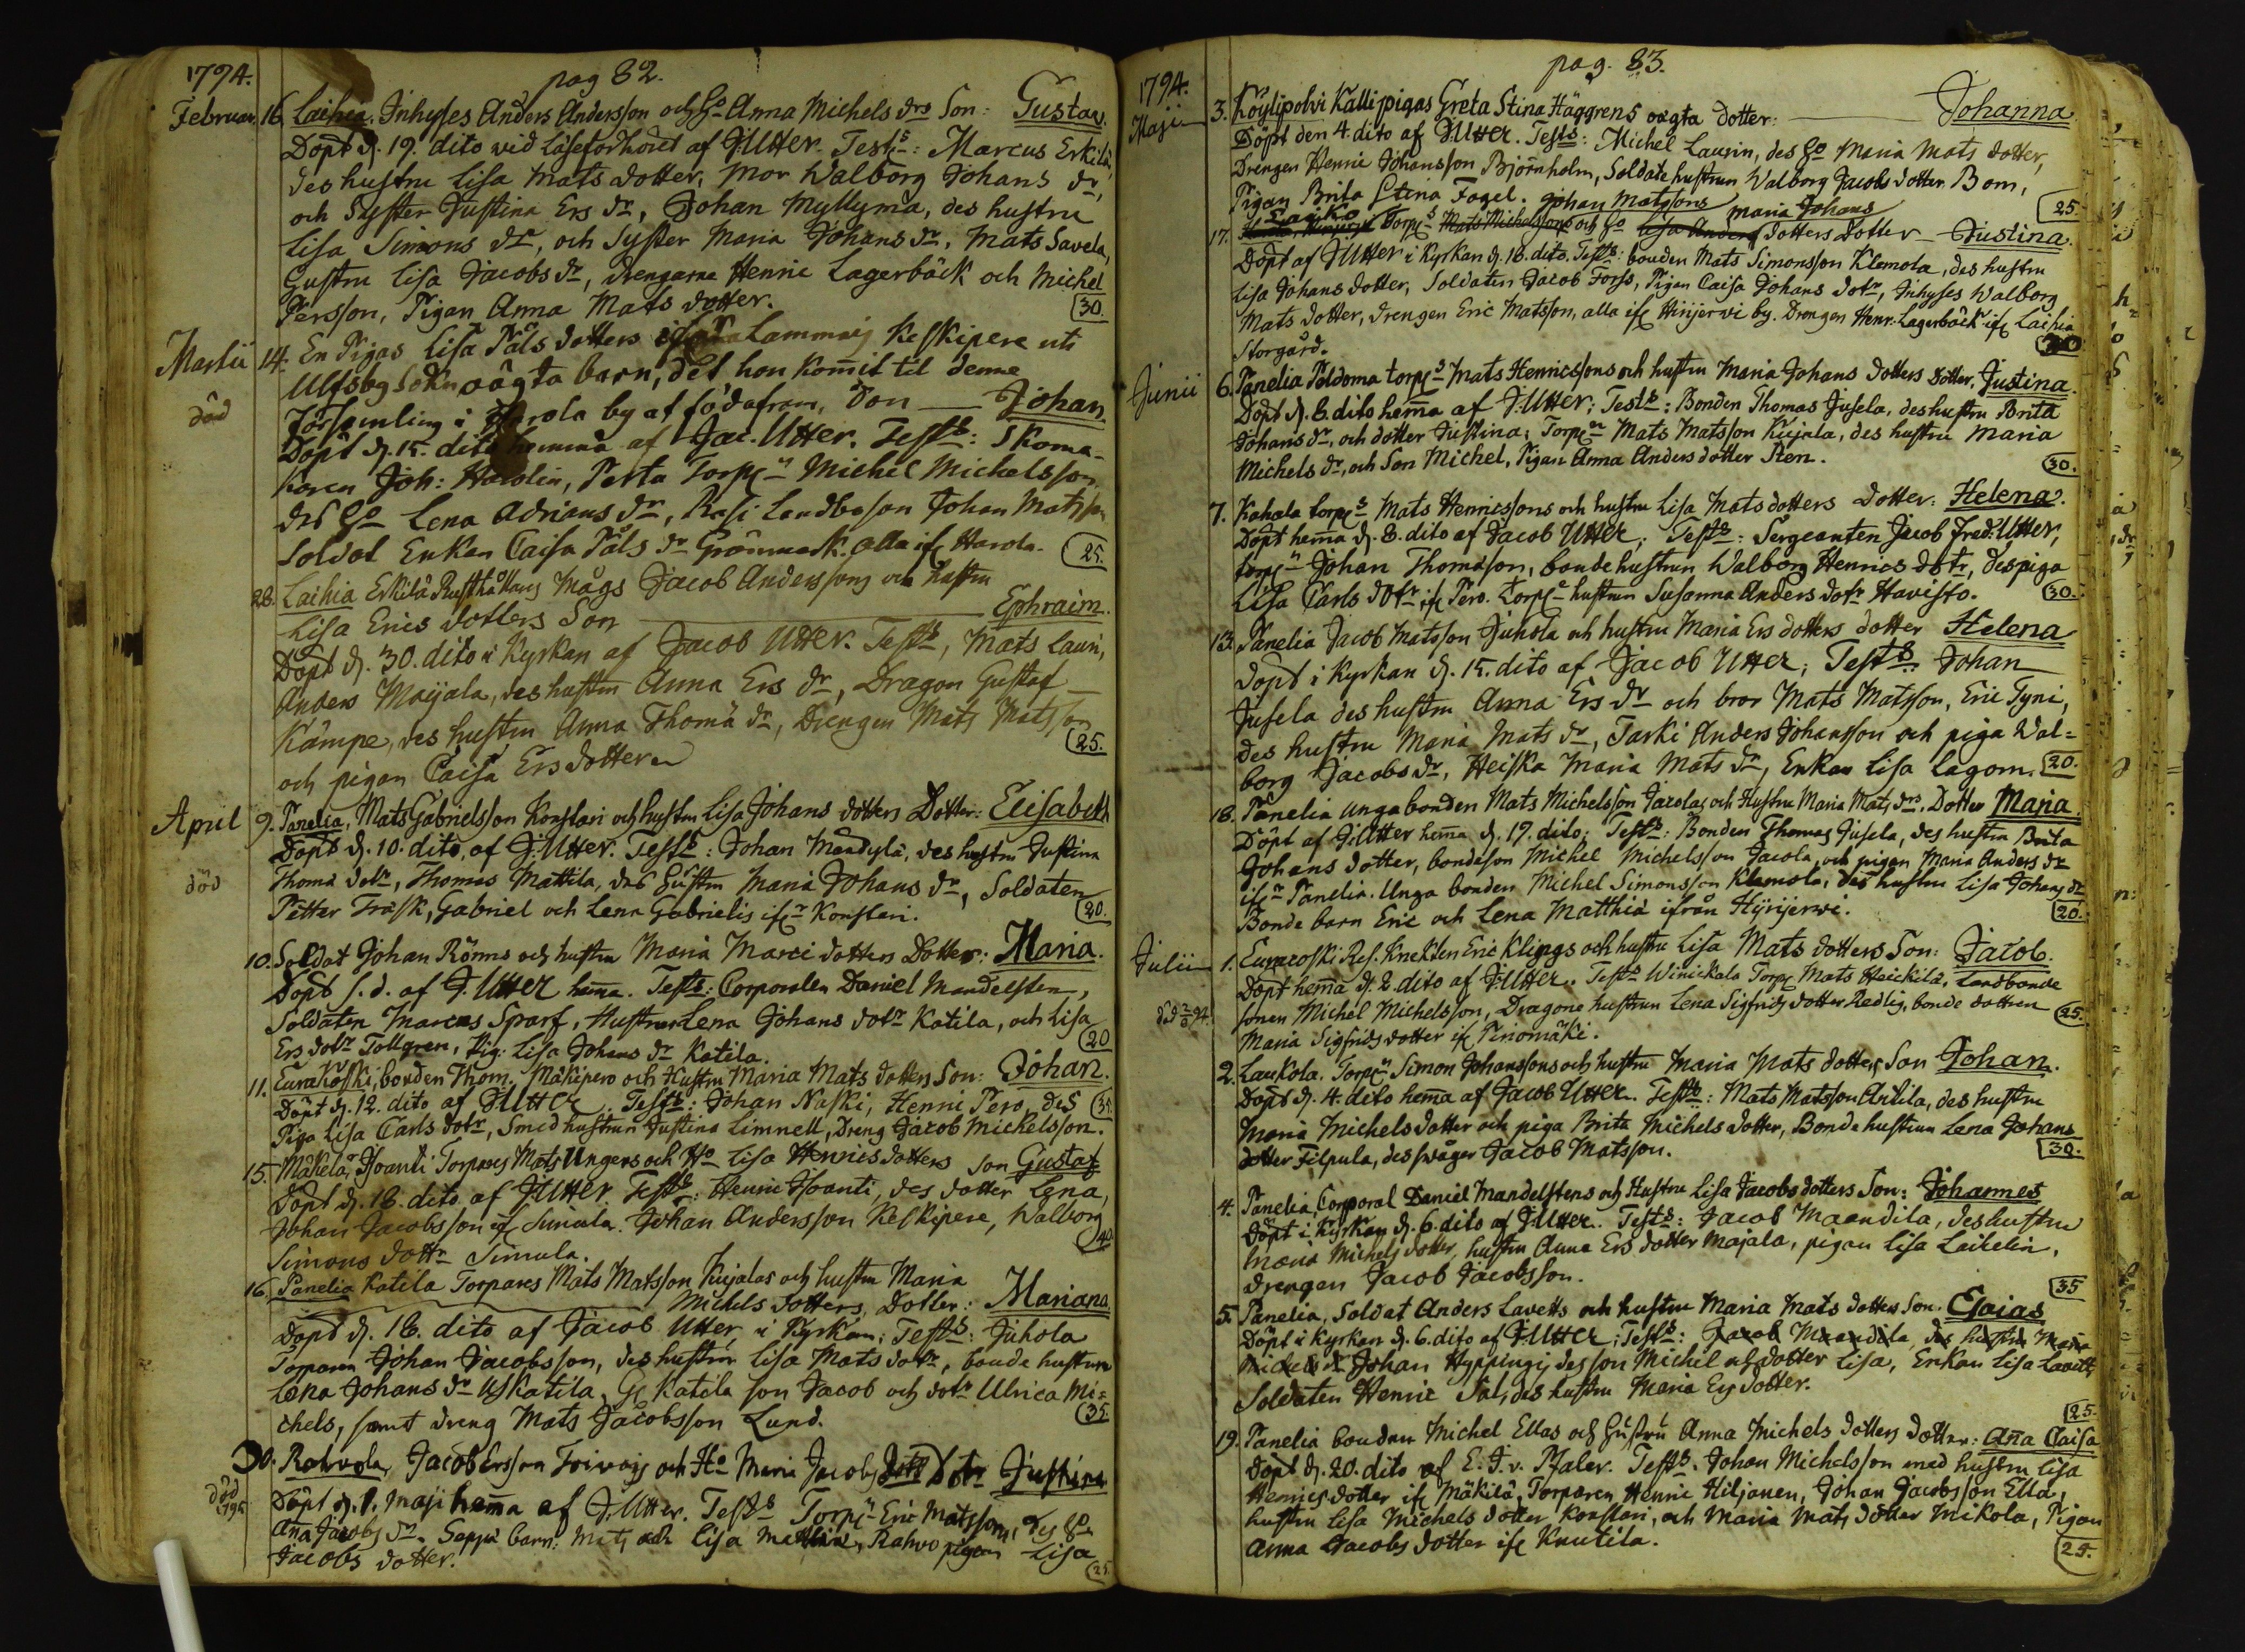 1794.
pag 82.
Februar. 16. Laihia. Inhyses Anders Andersson och Ho Anna Michels drs Son: Gustav.
Döpt d. 19. dito vid läseförhöret af J:Utter. Test:s: Marcus Erkilä,
des hustru Lisa Mats dotter, Mor Walborg Johans dr,
och Syster Justina Ers dr, Johan Myllymä, des hustru
Lisa Simons dr, och Syster Maria Johans dr, Mats Savela,
Hustru Lisa Jacobs dr, drengarna Henric Lagerbäck och Michel
Persson, Pigan Anna Mats dotter. 30.
Martii 14. En Pigas Lisa Påls dotters Lammais Keskipere uti
Ulfsby Sokn oägta barn, det hon kom̄it til denne
död
Församling i Harola by at föda fram, Son Johan.
Döpt d. 15. dito hemma af Jac. Utter. Test:s: Skoma-
karen Joh: Harolin, Perta Torp:n Michel Michelsson,
des Ho Lena Adrians dr, Rasi Landboson Johan Matsson
Soldat Enkan Caisa Påls dr Grönmark alla if Harola. 25.
28. Laihia Erkilä Rusthållares Mågs Jacob Anderssons och hustru
Lisa Erics dotters Son Ephraim.
Döpt d. 30. dito i Kyrkan af Jacob Utter. Test:s, Mats Lauri,
Anders Maijala, des hustru Anna Ers dr, Dragon Gustaf
Kämpe, des hustru Anna Thomä dr, Drengen Mats Matsson
och pigan Caisa Ersdotter 25.
April 9. Panelia, Mats Gabrielsson Konstari och hustru Lisa Johans dotters Dotter: Elisabeth
Döpt d. 10. dito, af J:Utter. Test:s: Johan Mandylä, des hustru Justina
död
Thomä dotr, Thomas Mattila, des Hustru Maria Johans dr, Soldaten
Petter Frask, Gabriel och Lena Gabrielis ifr Konstari. 20.
10. Soldat Johan Rönns och hustru Maria Marci dotters Dotter: Maria.
Döpt s. d. af J. Utter hem̄a. Test:s: Corporalen Daniel Mandelsten,
Soldaten Marcus Sparf, Hustrun Lena Johans dotr Katila, och Lisa
Ers dotr Tollgren, Pig: Lisa Johans dr Katila. 20
11. Eurakoski, bonden Thom. Mäkipero och Hustru Maria Mats dotters Son: Johan.
Döpt d. 12. dito af J:Utter. Test:s: Johan Naski, Henric Pero, des 35.
Piga Lisa Carls dotr, Smed hustrun Justina Limnell, Dreng Jacob Michelsson.
15. Mäkelä, Isoanti Torpares Mats Ungers och Ho Lisa Henrics dotters Son Gustaf
Döpt d. 18. dito af J:Utter. Test:s: Henric Isoanti, des dotter Lena,
Johan Jacobsson if Simula. Johan Andersson Keskipere, Walborg
Simons dottr Simula. 40.
16. Panelia Katila Torpares Mats Matsson Kujalas och hustru Maria
Michels dotters, Dotter: Mariana.
Döpt d. 18. dito af Jacob Utter, i Kyrkan; Test:s: Juhola
Torparen Johan Jacobsson, des hustru Lisa Mats dotr, bonde hustrun
Lena Johans dr Uskatila, Gl Katila son Jacob och dotr Ulrica Mi=
chels, samt dreng Mats Jacobsson Lund. 35.
30. Rahvola, Jacob Ersson Toivais och Ho Maria Jacobs Dotr Justina
död 1795
Döpt d. 1. Maji hem̄a af J. Utter. Test:s Torp:n Eric Matsson, des Ho
An̄a Jacobs dr. Seppä barn: Mats och Lisa Rahvo pigan Lisa
Jacobs dotter. 25.
1794.
pag. 83.
Maji 3. Köylipolvi Kalli pigas Greta Stina Häggrens oägta dotter: Johanna
Döpt den 4. dito af J:Utter. Test:s: Michel Laurin, des Ho Maria Mats dotter,
Drengen Henric Johansson Björnholm, Soldate hustrun Walborg Jacobs dotter Bom,
Pigan Brita Stina Fogel. 25.
Lauko Johan Matssons Maria Johans
17. Torp:s Mats Michelssons och Ho Lisa Anders dotters Dotter Justina.
Döpt af J:Utter i Kyrkan d. 18. dito. Test:s: bonden Mats Simonsson Klemola, des hustru
Lisa Johans dotter, Soldaten Jacob Forss, Pigan Caisa Johans dotr, Inhyses Walborg
Mats dotter, drengen Eric Matsson, alla if Hinjerwi by. Drengen Henr: Lagerbäck if Laihia
Storgård.
Junii 6. Panelia Poldoma torp:s Mats Henricssons och hustru Maria Johans dotters Dotter, Justina.
Döpt d. 8. dito hem̄a af J:Utter; Test:s: Bonden Thomas Jusela, des hustru Brita
Johans dr, och dotter Justina; Torp:n Mats Matsson Kujala, des hustru Maria
Michels dr, och Son Michel, Pigan Anna Anders dotter Sten. 30.
7. Kahala torp:s Mats Henricssons och hustru Lisa Mats dotters Dotter: Helena.
Döpt hem̄a d. 8. dito af Jacob Utter; Test:s: Sergeanten Jacob Fred: Utter,
torp:n Johan Thomasson, bondehustrun Walborg Henrics dotr, des piga
Lisa Carls dotr if Pero. Torp:e hustrun Susanna Anders dotr Havisto. 30.
13. Panelia Jacob Matsson Juhola och hustru Maria Ers dotters dotter Helena
döpt i Kyrkan d. 15. dito af Jacob Utter; Test:s Johan
Jusela des hustru Anna Ers dr och bror Mats Matsson, Eric Tyni,
des hustru Maria Mats dr, Tarki Anders Johansson och piga Wal=
borg Jacobs dr, Heiska Maria Mats dr, Enkan Lisa Lagom. 20.
18. Panelia unga bonden Mats Michelsson Jacolas och Hustru Maria Mats drs, Dotter Maria.
Döpt af J:Utter hem̄a d. 19. dito; Test:s: Bonden Thomas Jusela, des hustru Brita
Johans dotter, bondeson Michel Michelsson Jacola, och pigan Maria Anders dr
ifr Panelia. Unga bonden Michel Simonsson Klemola, des hustru Lisa Johans dr
Bonde barn Eric och Lena Matthiä ifrån Hijrijerwi. 20.
Julii 1. Euracoski Res. Knekten Eric Klings och hustru Lisa Mats dotters Son: Jacob.
Döpt hem̄a d. 2. dito af J:Utter. Test:s Winickala Torp: Mats Heickilä, Landbonde
sonen Michel Michelsson, Dragone hustrun Lena Sigfrids dotter Redlig, bonde dottren 25.
Maria Sigfrids dotter if Pinomäki.
2. Laukola. Torp:n Simon Johanssons och hustru Maria Mats dotters Son Johan.
Döpt d. 4. dito hem̄a af Jacob Utter. Test:s: Mats Matsson Antila, des hustru
Maria Michels dotter och piga Brita Michels dotter, Bonde hustrun Lena Johans
dotter Filpula, des swåger Jacob Matsson. 30.
4. Panelia, Corporal Daniel Mandelstens och Hustru Lisa Jacobs dotters Son: Johannes
Döpt i Kyrkan d. 6. dito af J:Utter. Test:s: Jacob Maandila, des hustru
Maria Michels dotter, hustru Anna Ers dotter Majala, pigan Lisa Laikelin,
drengen Jacob Jacobsson. 35
5. Panelia, Soldat Anders Lavetts och hustru Maria Mats dotters Son. Esaias
Döpt i Kyrkan d. 6. dito af J:Utter; Test:s: Jacob Maandila, des hustru Maria
Michels dr Johan Hyppings des son Michel och dotter Lisa, Enkan Lisa Lavett,
Soldaten Henric Sal, des hustru Maria Ers dotter. 25.
19. Panelia bonden Michel Ellas och Hustru Anna Michels dotters dotter: An̄a Caisa
döpt d. 20. dito af E. J. v. Pfaler. Test:s. Johan Michelsson med hustru Lisa
Henrics dotter if Mäkilä, Torparen Henric Hiljanen, Johan Jacobsson Ella,
hustru Lisa Michels dotter Konstari, och Maria Mats dotter Mikola, Pigan
Anna Jacobs dotter if Knutila. 25.